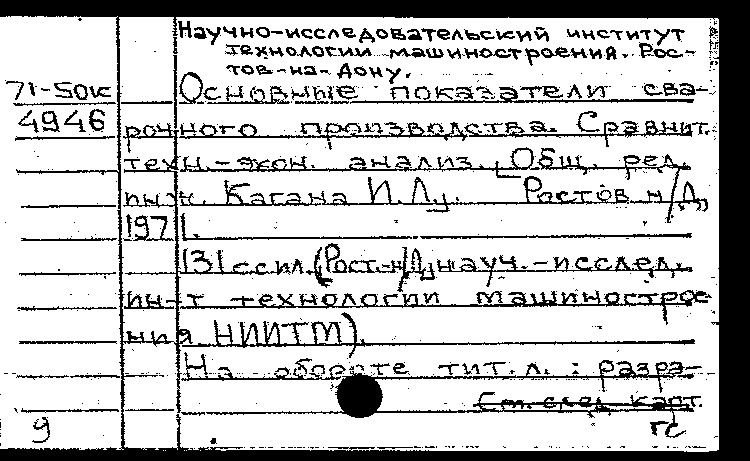 Научно-исследовательский институт
технологии машиностроения. Рос-
тов-на-Дону.
71-50к Основные показатели сва-
4946 рочного производства. Сравнит.
техн.-экон. анализ. Общ. ред.
инж. Кагана И.Ц. Ростов н/Д,
1971.
131 с с ил. (Рост.-н/Д, науч.-исслед.
ин-т технологии машинострое
ния НИИТМ).
На обороте тит. л. : разра-
См. след. карт.
9 гс